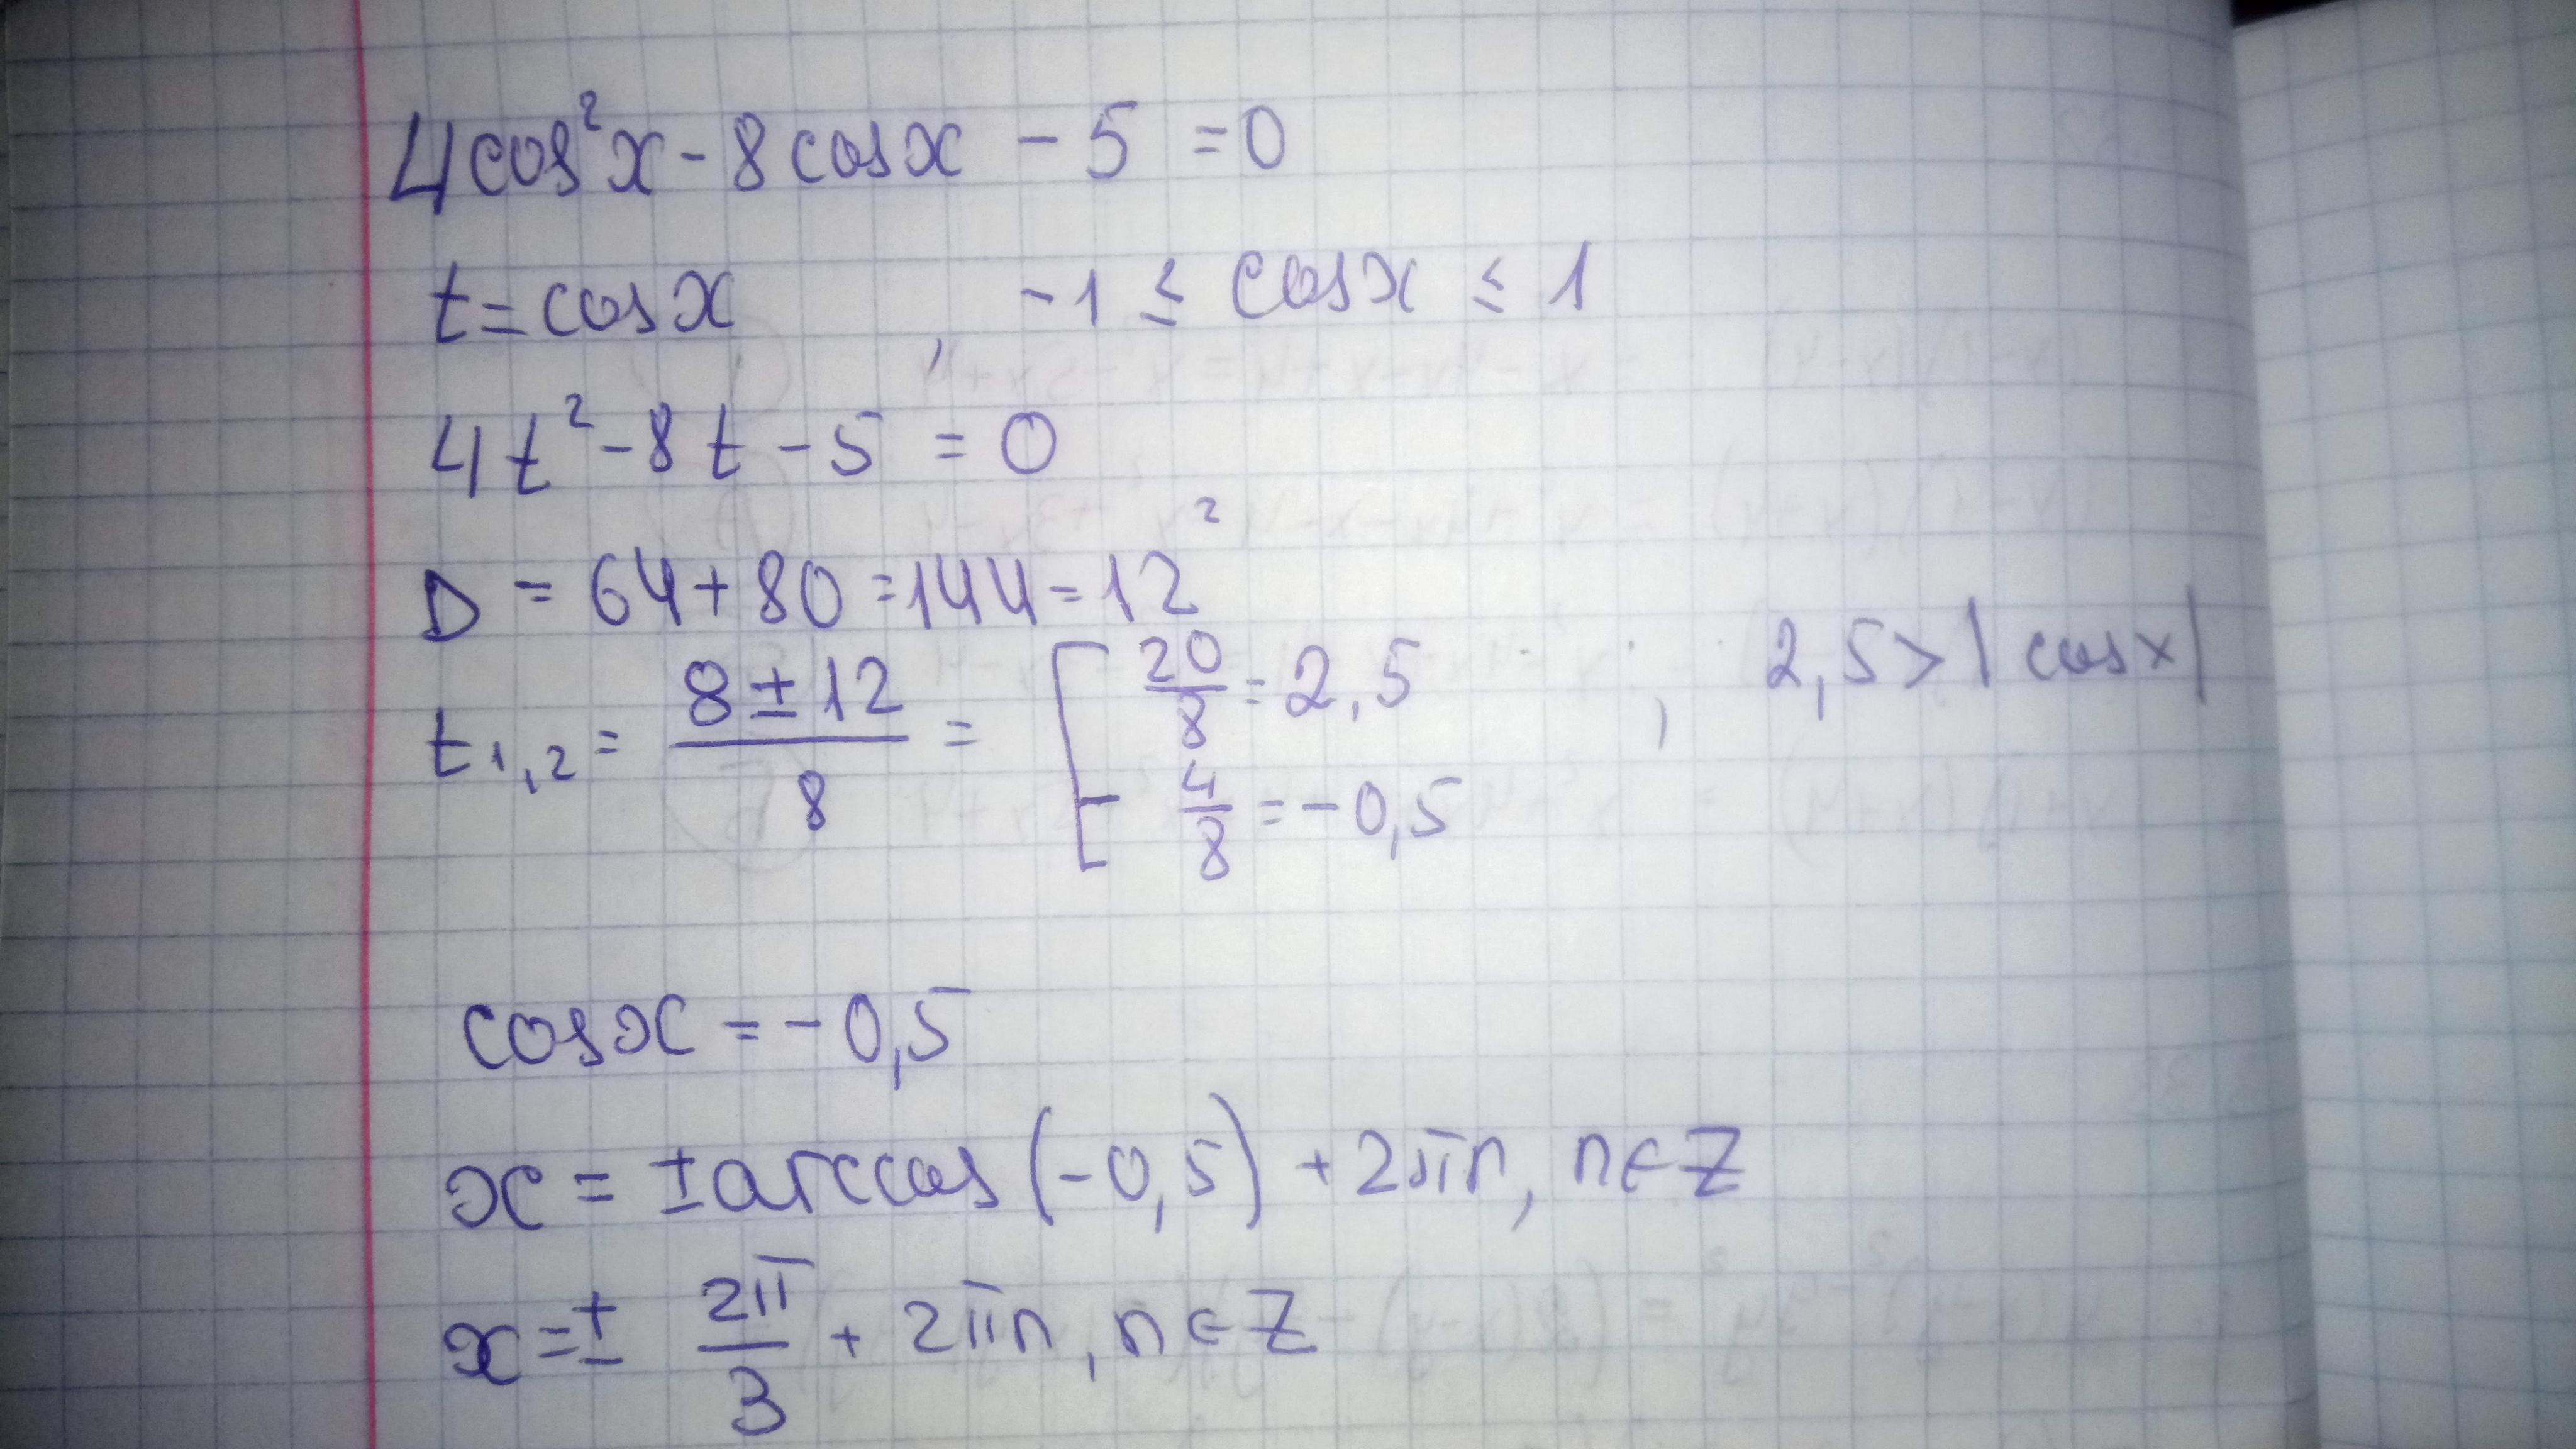 4cos²x - 8cosx - 5 = 0
t = cosx , -1 ≤ cosx ≤ 1
4t² - 8t - 5 = 0
D = 64 + 80 = 144 = 12²
t₁,₂ = (8 ± 12)/8 = [ 20/8 = 2,5 ; 2,5 > |cosx|
- 4/8 = -0,5
cosx = -0,5
x = ± arccos(-0,5) + 2πn, n ∈ Z
x = ± 2π/3 + 2πn, n ∈ Z